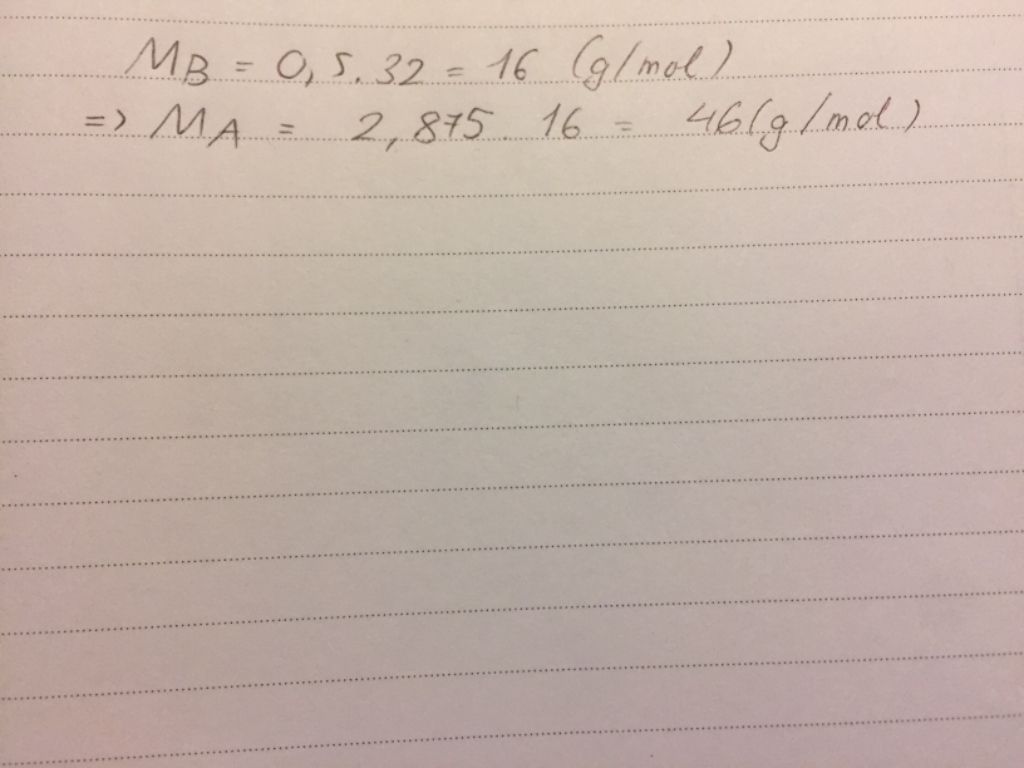 MB = 0,5.32 = 16 (g/mol)
=> MA = 2,875. 16 = 46(g/mol)